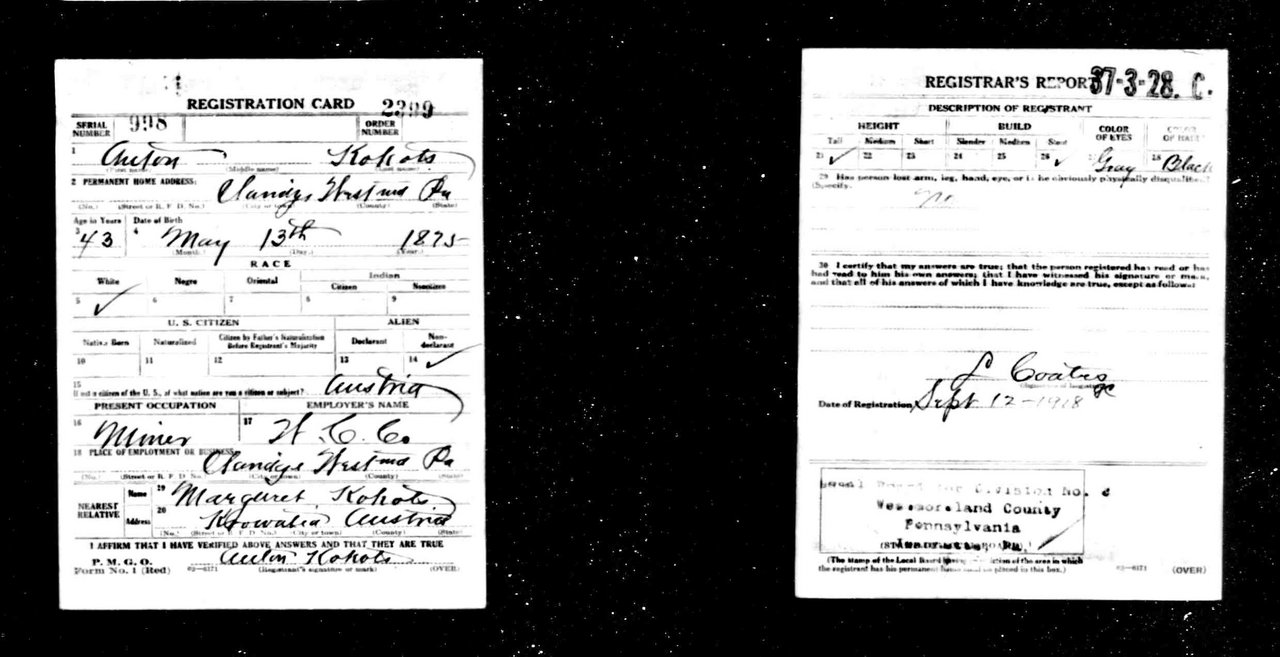 REGISTRATION CARD 2399
SERIAL NUMBER 998 ORDER NUMBER
1 Anton Kokots
(First name) (Middle name) (Last name)
2 PERMANENT HOME ADDRESS:
(No.) (Street or R. F. D. No.) (City or town) (County) (State)
Westmd Pa
Age in Years Date of Birth
3 43 4 May 13th 1875
(Month.) (Day.) (Year.)
RACE
White Negro Oriental Indian
Citizen Noncitizen
5 ✓ 6 7 8 9
U. S. CITIZEN ALIEN
Native Born Naturalized Citizen by Father's Naturalization Before Registrant's Majority Declarant Non-declarant
10 11 12 13 14 ✓
15 If not a citizen of the U. S., of what nation are you a citizen or subject? Austria
PRESENT OCCUPATION EMPLOYER'S NAME
16 Miner 17 H. C. Co
18 PLACE OF EMPLOYMENT OR BUSINESS:
Westmd Pa
(No.) (Street or R. F. D. No.) (City or town) (County) (State)
NEAREST RELATIVE Name 19 Margaret Kokots
Address 20 Krowatia Austria
(No.) (Street or R. F. D. No.) (City or town) (County) (State)
I AFFIRM THAT I HAVE VERIFIED ABOVE ANSWERS AND THAT THEY ARE TRUE
P. M. G. O.
Form No. 1 (Red) 03—6171 Anton Kokots
(Registrant's signature or mark) (OVER)
REGISTRAR'S REPORT 37-3-28. C.
DESCRIPTION OF REGISTRANT
HEIGHT BUILD COLOR OF EYES COLOR OF HAIR
Tall Medium Short Slender Medium Stout
21 ✓ 22 23 24 25 26 ✓ 27 Gray 28 Black
29 Has person lost arm, leg, hand, eye, or is he obviously physically disqualified?
(Specify.) No
30 I certify that my answers are true; that the person registered has read or has
had read to him his own answers; that I have witnessed his signature or mark,
and that all of his answers of which I have knowledge are true, except as follows:
Coates
(Signature of Registrar)
Date of Registration Sept 12-1918
Local Board for Division No.
Westmoreland County
Pennsylvania
(STAMP OF LOCAL BOARD)
(The stamp of the Local Board having jurisdiction of the area in which
the registrant has his permanent home shall be placed in this box.) 03—6171 (OVER)